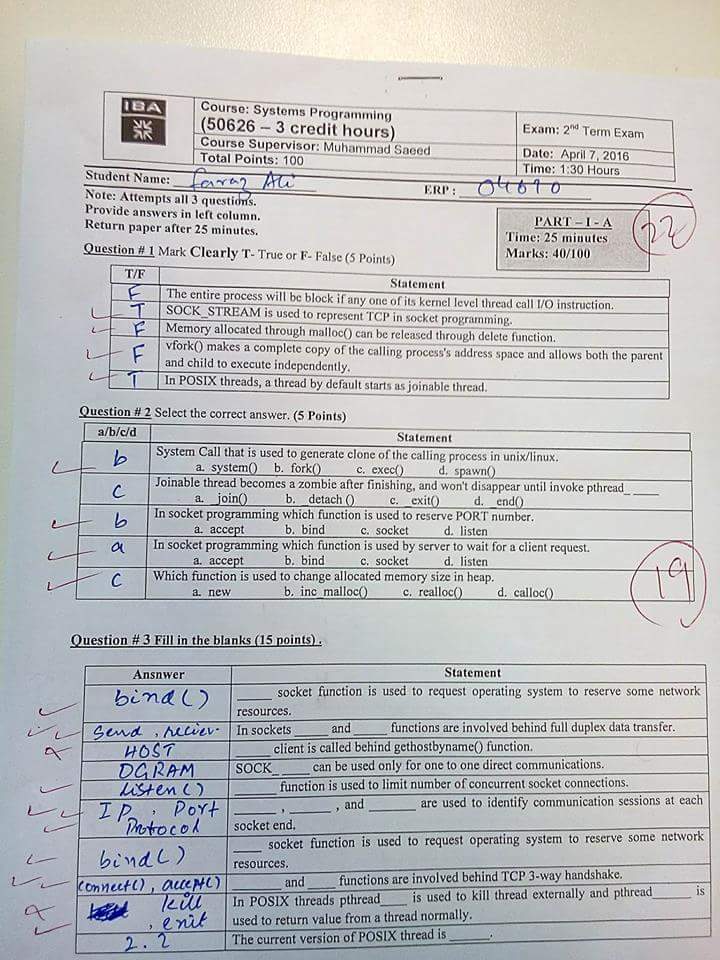 IBA
Course: Systems Programming
(50626 – 3 credit hours)
Course Supervisor: Muhammad Saeed
Total Points: 100
Exam: 2nd Term Exam
Date: April 7, 2016
Time: 1:30 Hours
Student Name: Faraz Ali ERP : 04690
Note: Attempts all 3 questions.
Provide answers in left column.
Return paper after 25 minutes.
PART – I - A
Time: 25 minutes
Marks: 40/100
22
Question # 1 Mark Clearly T- True or F- False (5 Points)
T/F Statement
F The entire process will be block if any one of its kernel level thread call I/O instruction.
T SOCK_STREAM is used to represent TCP in socket programming.
F Memory allocated through malloc() can be released through delete function.
F vfork() makes a complete copy of the calling process's address space and allows both the parent
and child to execute independently.
T In POSIX threads, a thread by default starts as joinable thread.
Question # 2 Select the correct answer. (5 Points)
a/b/c/d Statement
b System Call that is used to generate clone of the calling process in unix/linux.
a. system() b. fork() c. exec() d. spawn()
c Joinable thread becomes a zombie after finishing, and won't disappear until invoke pthread_ _____
a. _join() b. _detach () c. _exit() d. _end()
b In socket programming which function is used to reserve PORT number.
a. accept b. bind c. socket d. listen
a In socket programming which function is used by server to wait for a client request.
a. accept b. bind c. socket d. listen
c Which function is used to change allocated memory size in heap.
a. new b. inc_malloc() c. realloc() d. calloc()
19
Question # 3 Fill in the blanks (15 points) .
Ansnwer Statement
bind() _____ socket function is used to request operating system to reserve some network
resources.
send, reciev. In sockets _____ and _____ functions are involved behind full duplex data transfer.
HOST _____ client is called behind gethostbyname() function.
DGRAM SOCK_____ can be used only for one to one direct communications.
Listen() _____ function is used to limit number of concurrent socket connections.
IP, Port _____ , _____ , and _____ are used to identify communication sessions at each
Protocol socket end.
bind() _____ socket function is used to request operating system to reserve some network
resources.
connect(), accept() _____ and _____ functions are involved behind TCP 3-way handshake.
kill In POSIX threads pthread_____ is used to kill thread externally and pthread_____ is
, exit used to return value from a thread normally.
2.2 The current version of POSIX thread is _____.